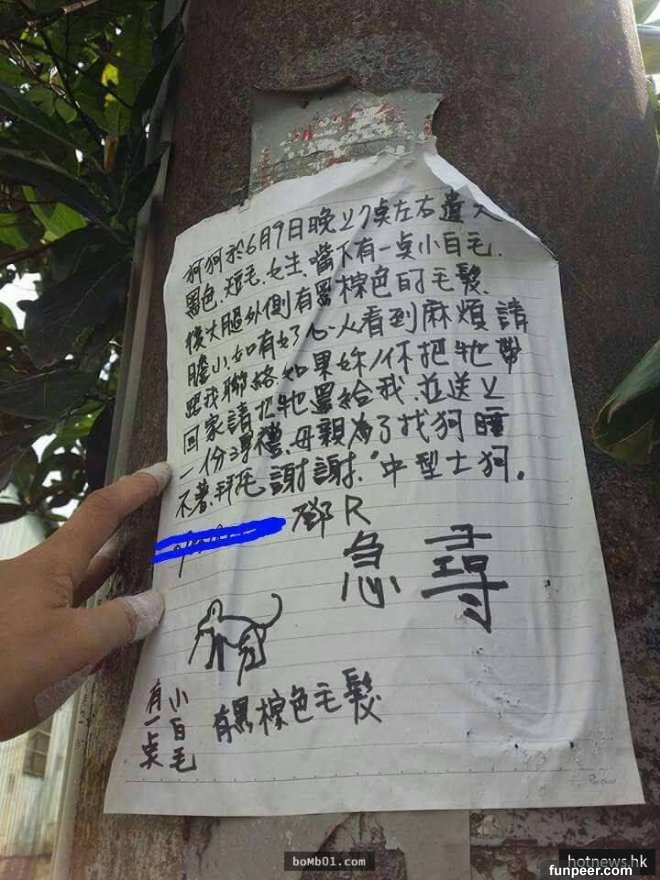 狗狗於6月9日晚上7点左右遺失
黑色、短毛、女生、嘴下有一点小白毛、
後大腿外側有黑棕色的毛髮、
膽小、如有好心人看到麻煩請
跟我聯絡、如果妳/你把牠帶
回家請把牠還給我、並送上
一份厚禮、母親為了找狗睡
不著、拜托、謝謝、"中型土狗。
鄧R
急尋
有一点
小白毛
有黑棕色毛髮
boMb01.com
hotnews.hk
funpeer.com